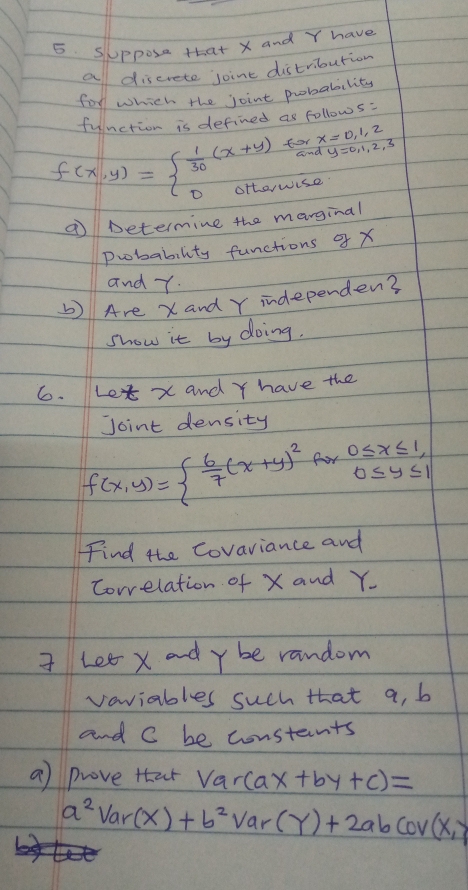 5. Suppose that X and Y have
a discrete joint distribution
for which the joint probability
function is defined as follows:
f(x,y) = { 1/30 (x+y) for x=0,1,2 and y=0,1,2,3
0 otherwise
a) Determine the marginal
probability functions of X
and Y.
b) Are X and Y independen?
Show it by doing.
6. Let X and Y have the
joint density
f(x,y) = { 6/7 (x+y)² for 0≤x≤1, 0≤y≤1
Find the Covariance and
Correlation of X and Y.
7 Let X and Y be random
variables such that a, b
and C be constants
a) prove that Var(ax+by+c)=
a² Var(X) + b² Var(Y) + 2ab Cov(X,Y